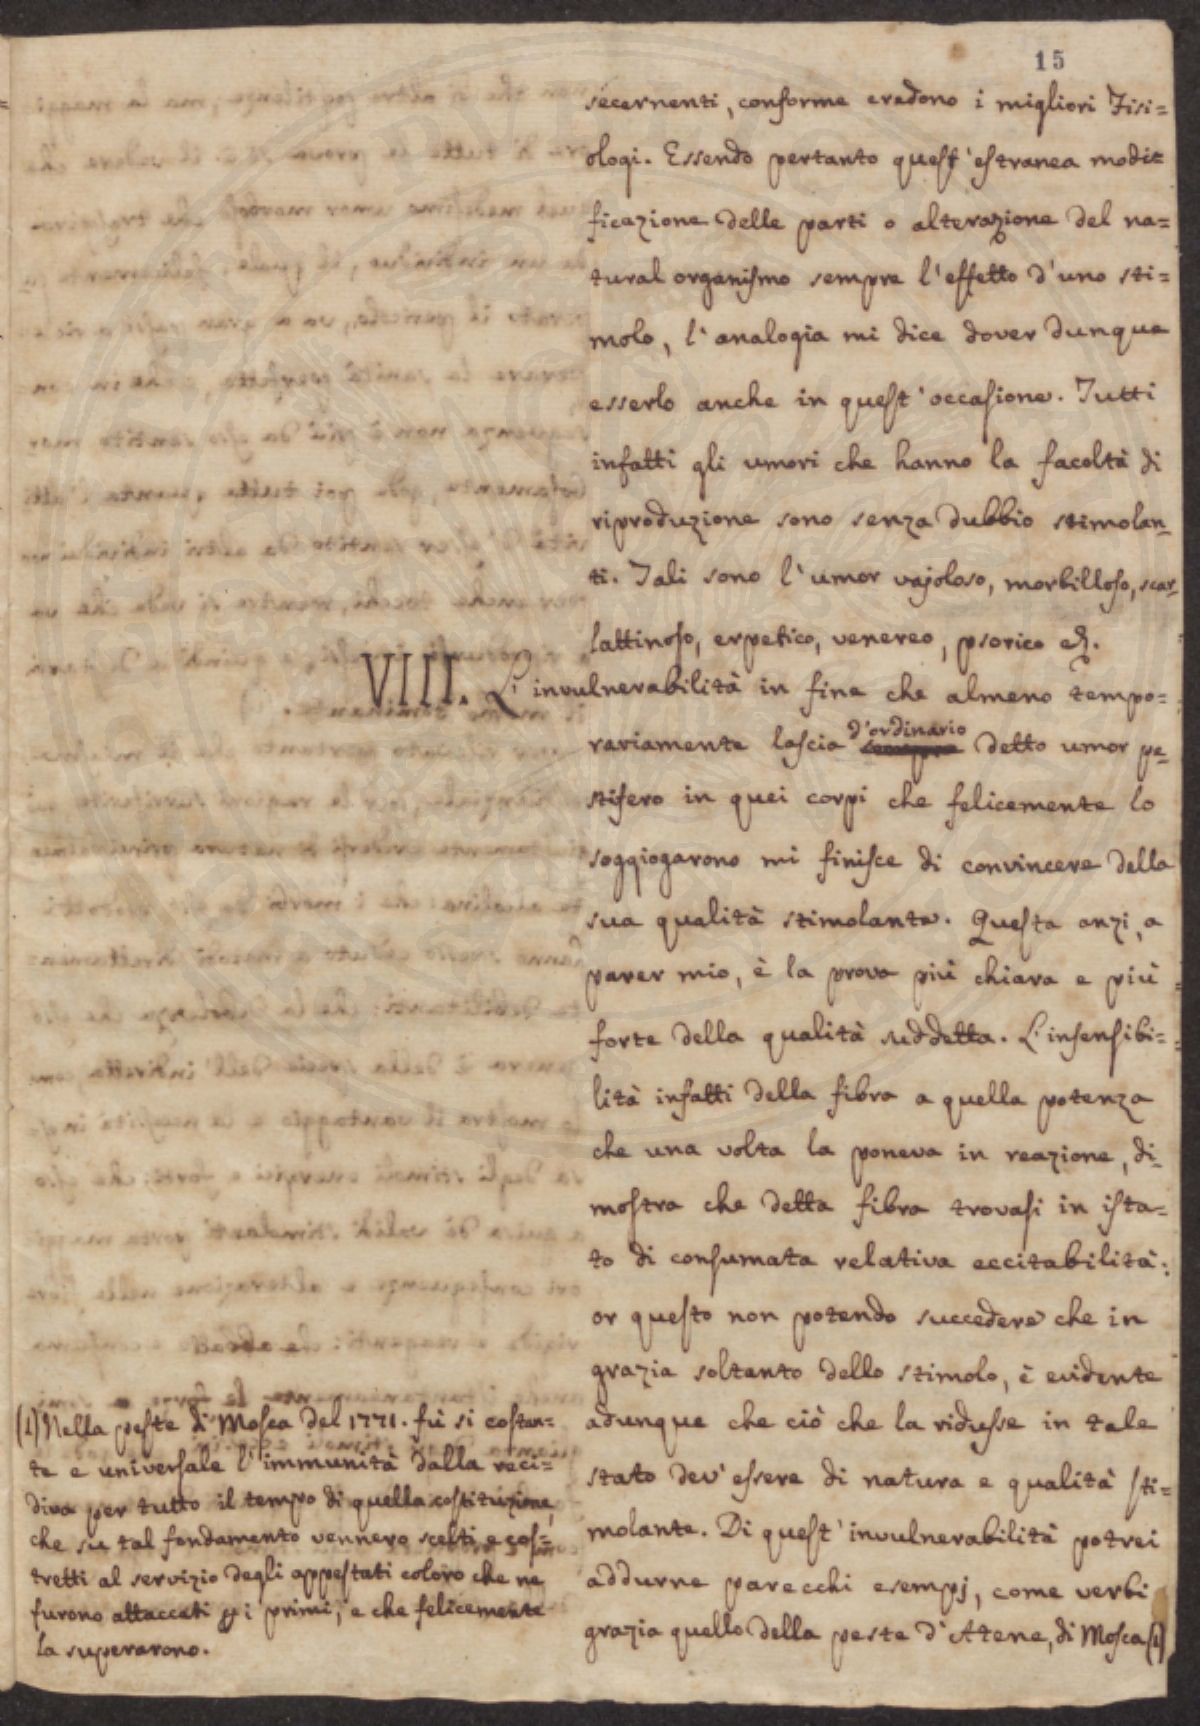 15
secernenti, conforme credono i migliori Fisi=
ologi. Essendo pertanto quest'estranea modi=
ficazione delle parti o alterazione del na=
tural organismo sempre l'effetto d'uno sti=
molo, l'analogia mi dice dover dunque
esserlo anche in quest'occasione. Tutti
infatti gli umori che hanno la facoltà di
riproduzione sono senza dubbio stimolan=
ti. Tali sono l'umor vajoloso, morbilloso, scar=
lattinoso, erpetico, venereo, psorico
VIII. L'invulnerabilità in fine che almeno tempo=
rariamente lascia d'ordinario detto umor pe=
stifero in quei corpi che felicemente lo
soggiogarono mi finisce di convincere della
sua qualità stimolante. Questa anzi, a
parer mio, è la prova più chiara e più
forte della qualità suddetta. L'insensibi=
lità infatti della fibra a quella potenza
che una volta la poneva in reazione, di=
mostra che detta fibra trovasi in ista=
to di consumata relativa eccitabilità:
or questo non potendo succedere che in
grazia soltanto dello stimolo, è evidente
adunque che ciò che la ridusse in tale
stato dev'essere di natura e qualità sti=
molante. Di quest'invulnerabilità potrei
addurne parecchi esempj, come verbi
grazia quello della peste d'Atene, di Mosca (1)
(1) Nella peste di Mosca del 1771. fù si costan=
te e universale l'immunità dalla reci=
diva per tutto il tempo di quella costituzione,
che su tal fondamento vennero scelti e cos=
tretti al servizio degli appestati coloro che ne
furono attaccati i primi, e che felicemente
la superarono.